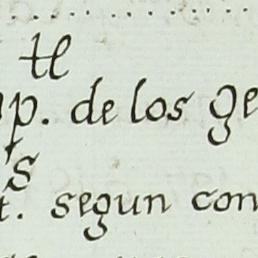 tl
p. de los ge
s
t. segun con